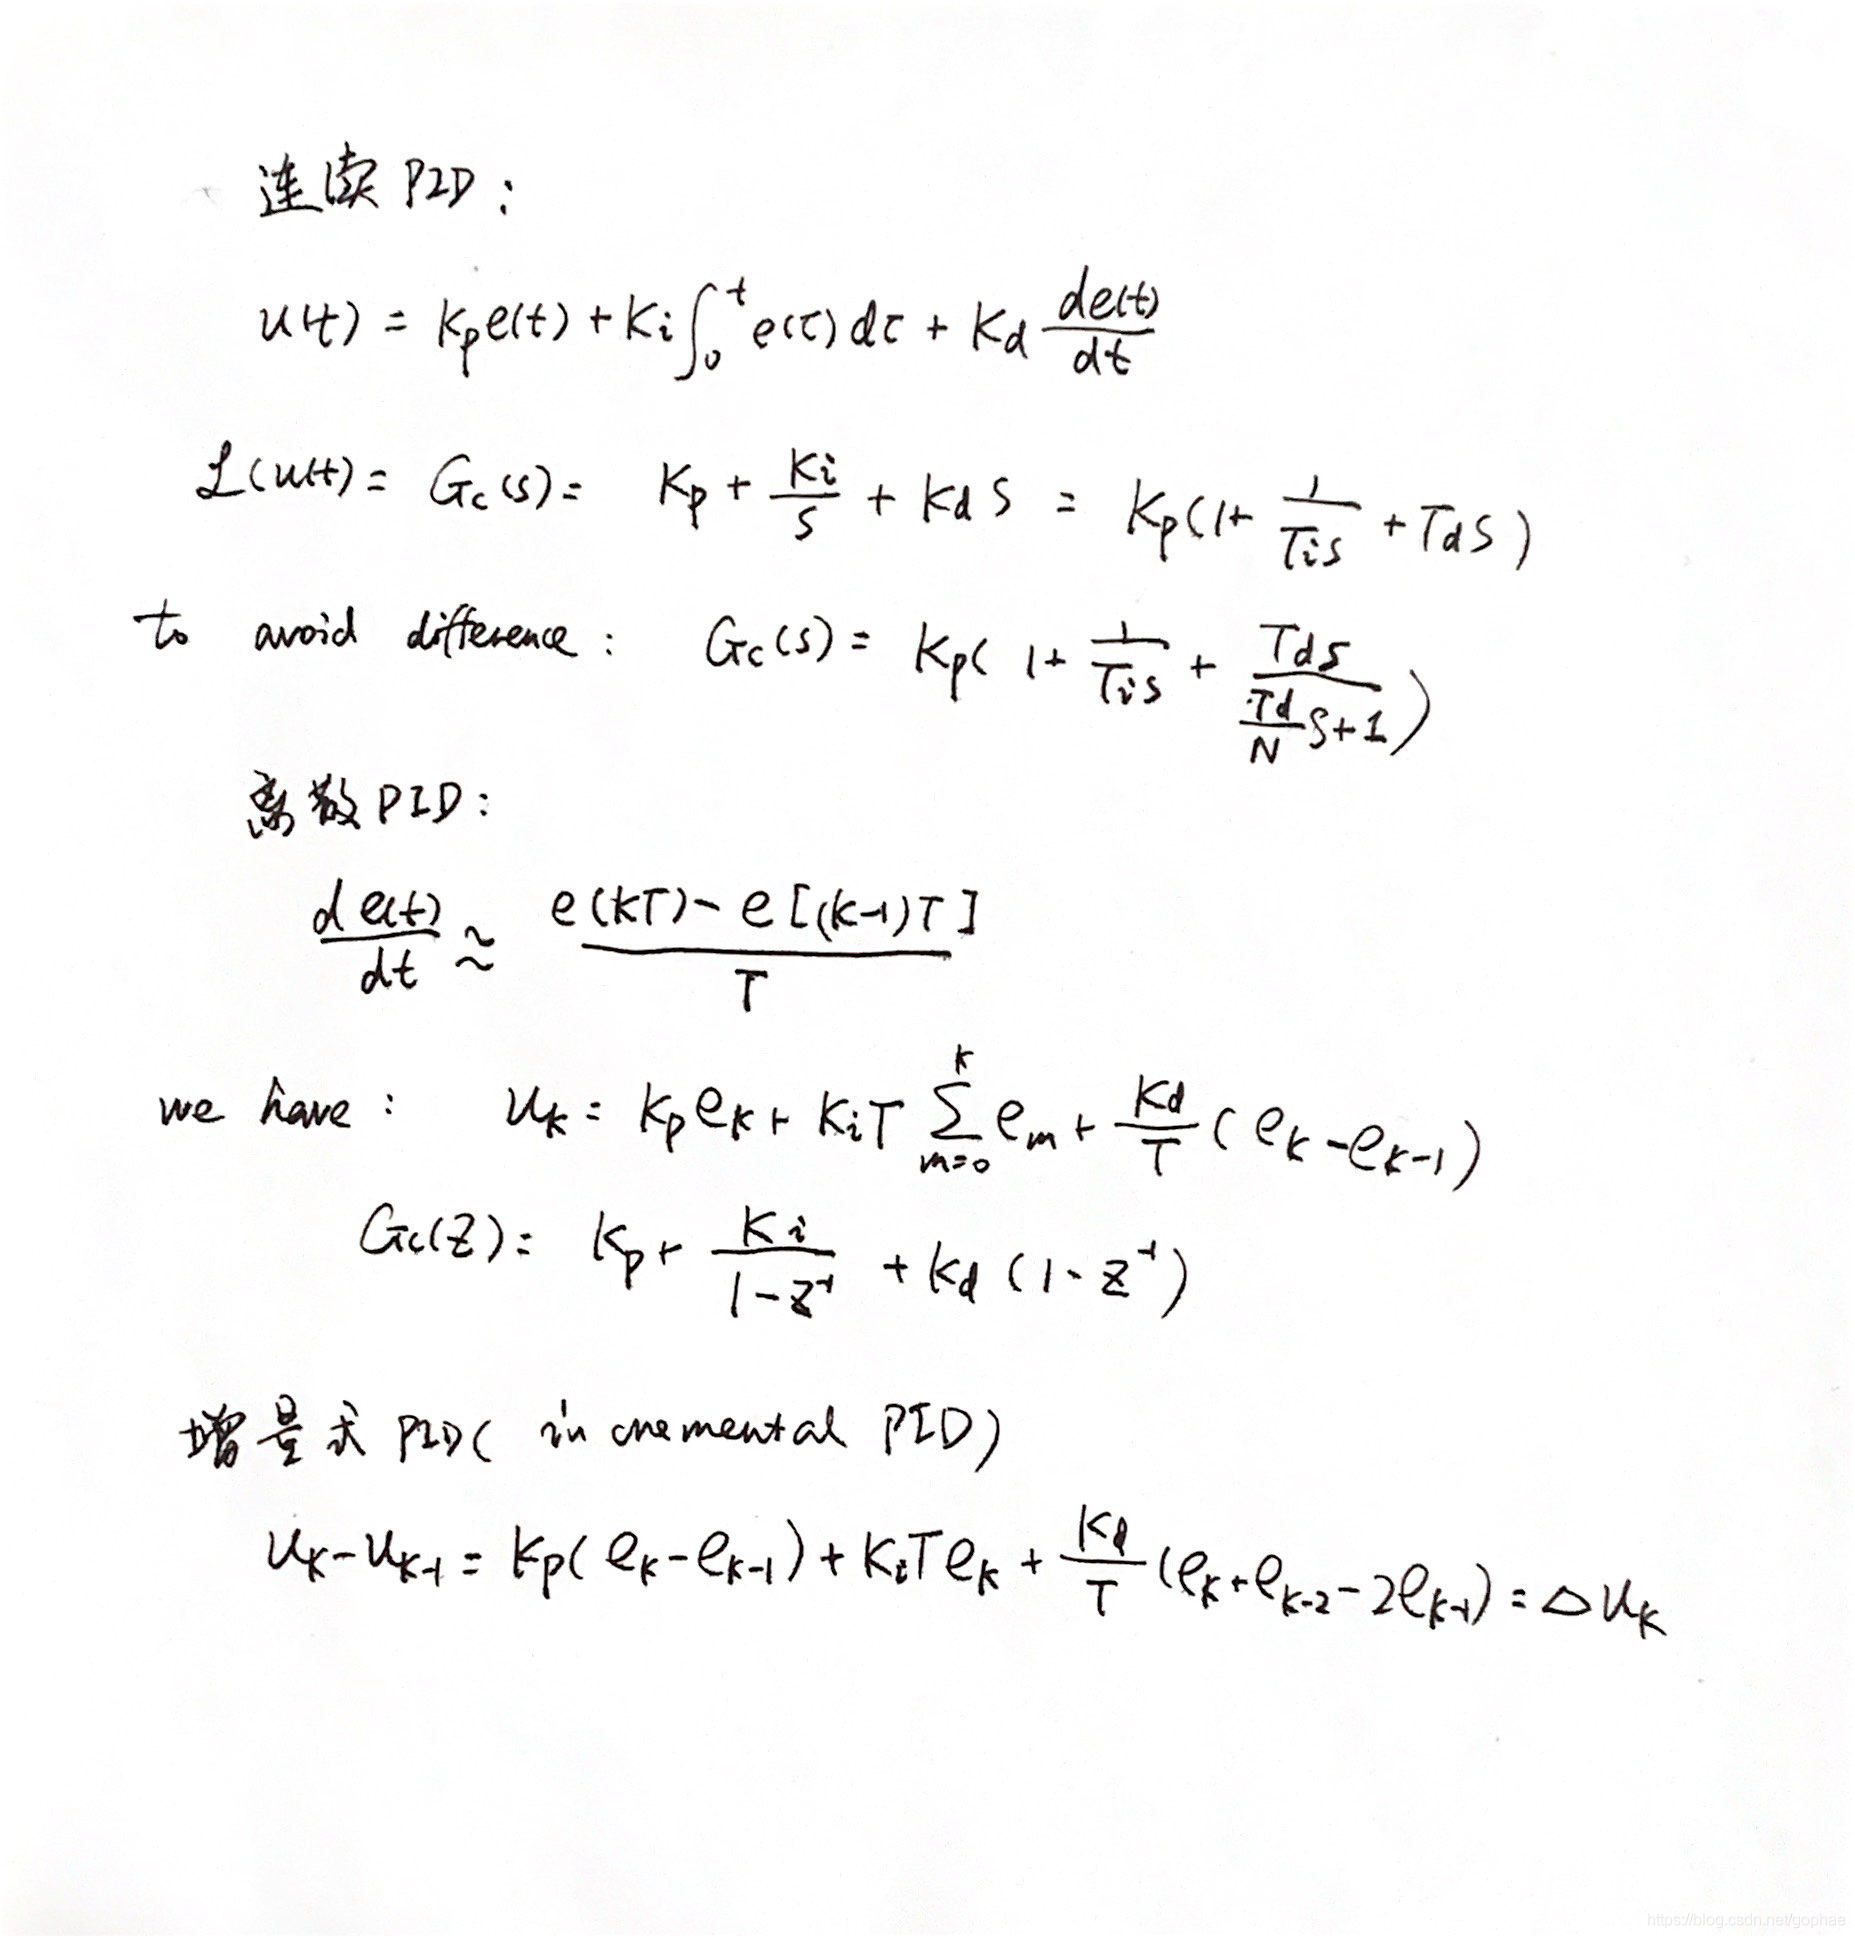 连续PID:
u(t) = Kp e(t) + Ki ∫₀ᵗ e(τ) dτ + Kd de(t)/dt
ℒ(u(t) = Gc(s) = Kp + Ki/s + Kd s = Kp(1 + 1/(Ti s) + Td s)
to avoid difference: Gc(s) = Kp( 1 + 1/(Ti s) + Td s/((Td/N) s + 1) )
离散PID:
de(t)/dt ≈ (e(kT) - e[(k-1)T])/T
we have: u_k = Kp e_k + Ki T Σ_{m=0}^{k} e_m + Kd/T (e_k - e_{k-1})
Gc(z) = Kp + Ki/(1 - z⁻¹) + Kd (1 - z⁻¹)
增量式PID( incremental PID)
u_k - u_{k-1} = Kp( e_k - e_{k-1}) + Ki T e_k + Kd/T (e_k + e_{k-2} - 2e_{k-1}) = Δu_k
https://blog.csdn.net/gophae